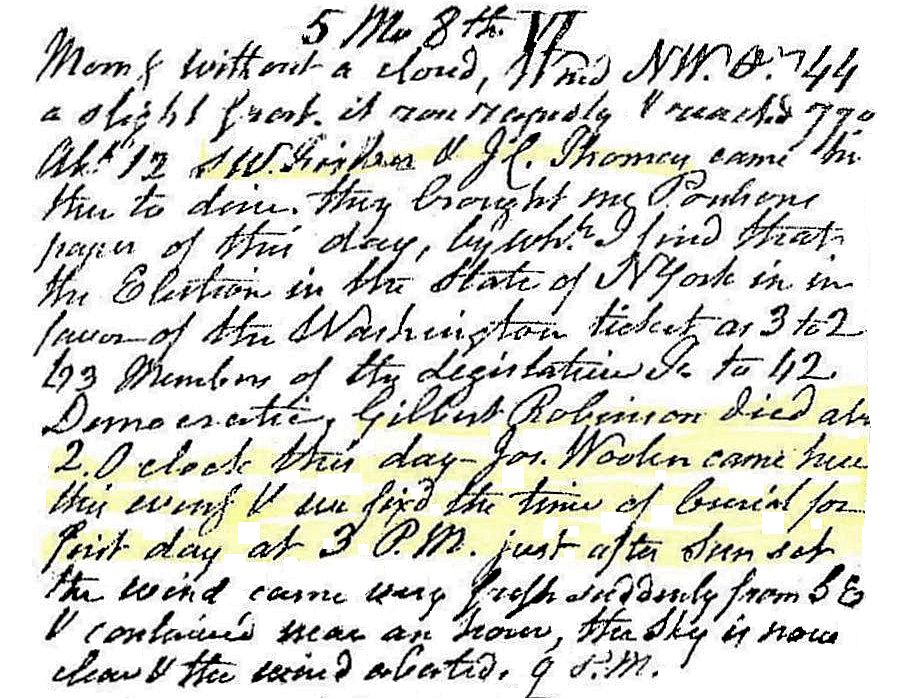 5 Mo 8th. VI
Morng without a cloud, Wind NW. &. 44
a slight frost. it ran rapidly & reached 77°
Abt. 12 & J C. Thomey came hi
ther to dine. they brought me Poulsons
paper of this day, by whh. I find that
the Election in the State of NYork in in
favor of the Washington ticket as 3 to 2
Members of the Legislative to 42
Democratic, Gilbert Robinson died abt
2. O clock this day - Jos. Woolen came here
this eveng & we fixd the time of burial for
first day at 3 P.M. just after Sun set
the wind came very fresh suddenly from S E
& continued near an hour, the Sky is now
clear & the wind abated. 9 P.M.